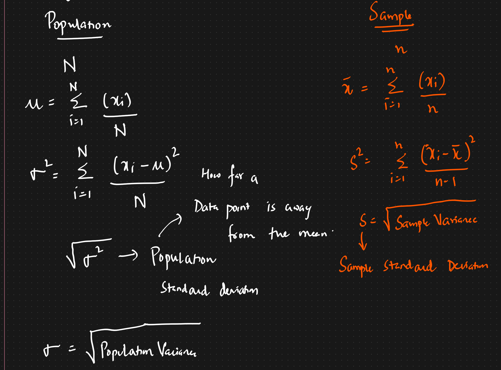 Population
N
μ = Σ_{i=1}^{N} (xi)/N
σ² = Σ_{i=1}^{N} (xi - μ)²/N
How far a
Data point is away
from the mean.
√σ² → Population
Standard deviation
σ = √Population Variance
Sample
n
x̄ = Σ_{i=1}^{n} (xi)/n
S² = Σ_{i=1}^{n} (xi - x̄)²/n-1
S = √Sample Variance
Sample standard Deviation